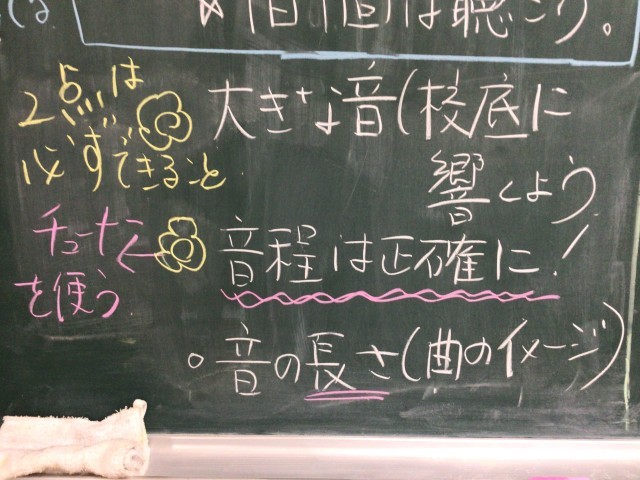 ★個個は聴こう。
2点は
必ずできること
大きな音(校底に
響くよう
チューナー
を使う
音程は正確に!
。音の長さ(曲のイメージ)